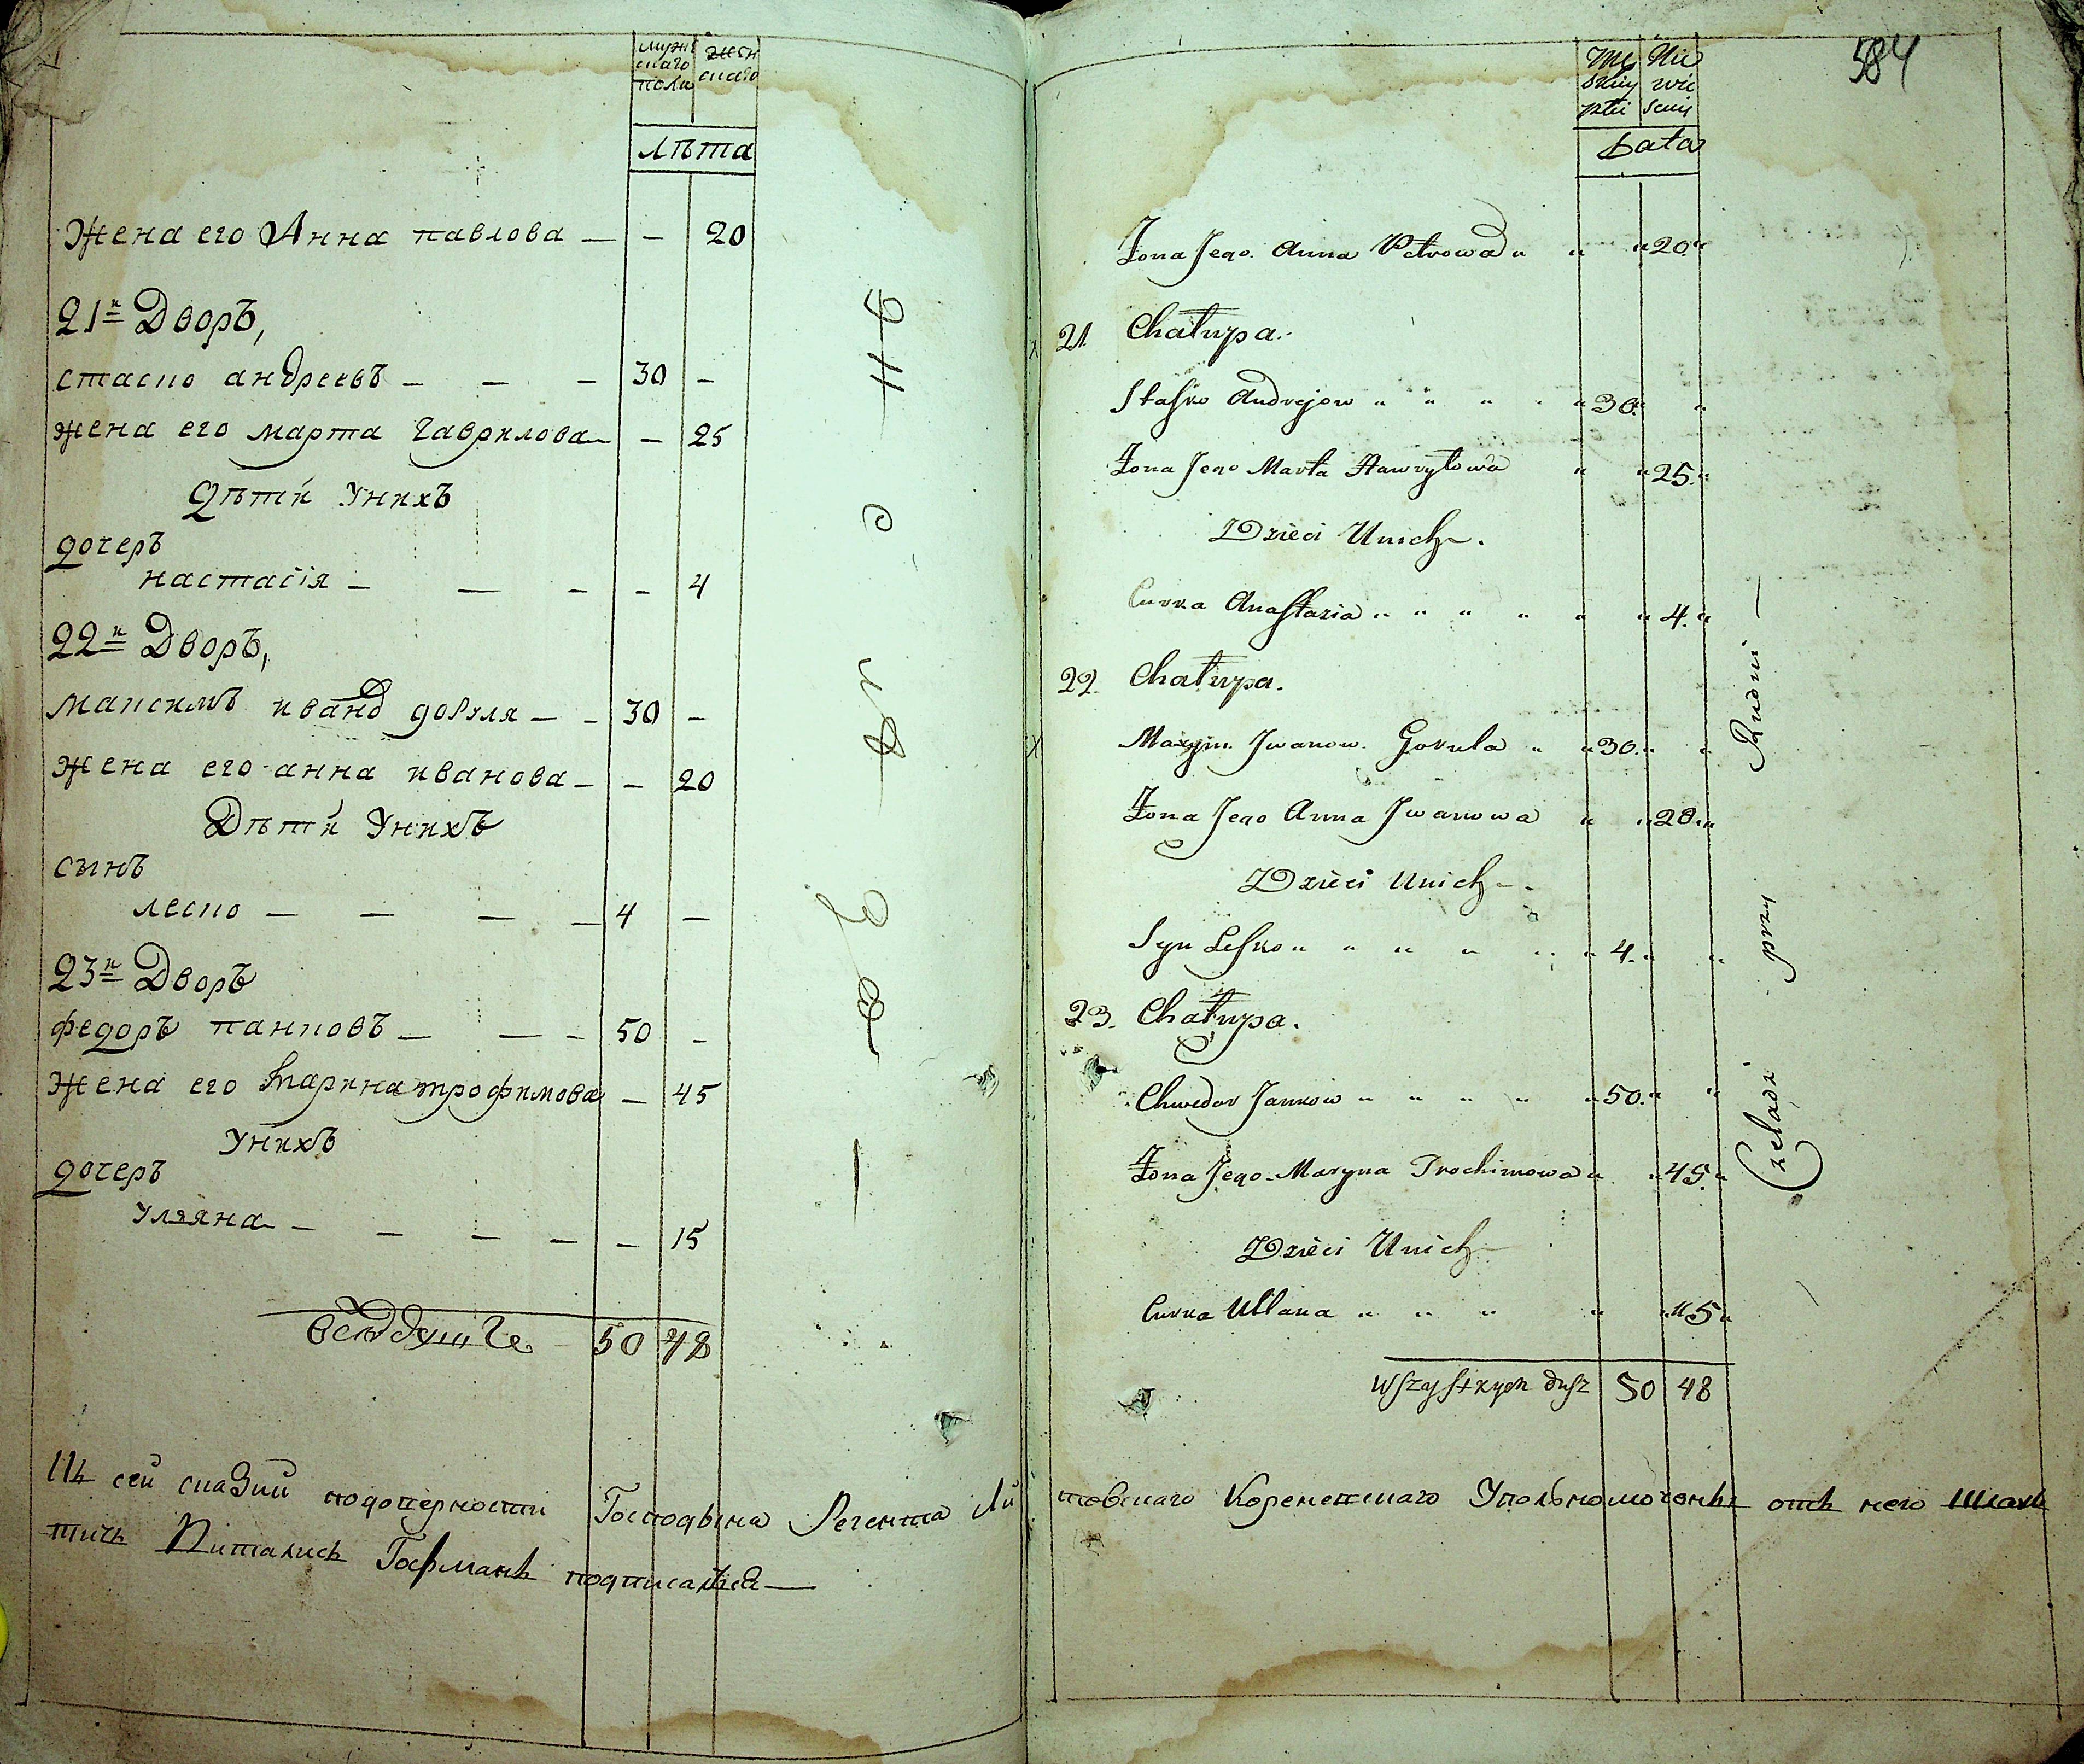 мужс
скаго
пола
жен
скаго
лѣта
Жена его Анна павлова — — 20
21й Дворъ,
стаско андреевъ — — — 30 —
жена его марта гаврилова — — 25
Дѣти унихъ
дочеръ
настасія — — — — 4
22й Дворъ,
максимъ иванов — — 30 —
жена его анна иванова — — 20
Дѣти Унихъ
сынъ
леско — — — — 4 —
23й Дворъ
федоръ панковъ — — — 50 —
Жена его Марина трофимова — 45
Унихъ
дочеръ
Уляна — — — — — 15
всѣхъ душъ 50 48
Mę
skiey
płci
Nie
wie
sciey
Lata
584
Żona Jego Anna Petrowa " " " 20 "
21. Chałupa.
Staśko Andrejow " " " " " 30. " "
Żona Jego Marta Hawryłowa " " 25. "
Dzieci Unich.
Curka Anastazia " " " " " " 4. "
22. Chałupa.
Maxym Jwanow Gorula " " 30. " "
Żona Jego Anna Jwanowa " " 20. "
Dzieci Unich.
Syn Leśko " " " " " " 4. " "
23. Chałupa.
Chwedor Jankow " " " " " 50. " "
Żona Jego Maryna Trochimowa " " 45. "
Dzieci Unich
Curka Ullana " " " " " 15 "
Wszystkych dusz 50 48
Czeladź przy Rudni —
Къ сей сказки Господына Регента Ли
товскаго Коренетскаго Упольномоченъ отъ него Шлах
тичъ Виталисъ Гофманъ подписался —